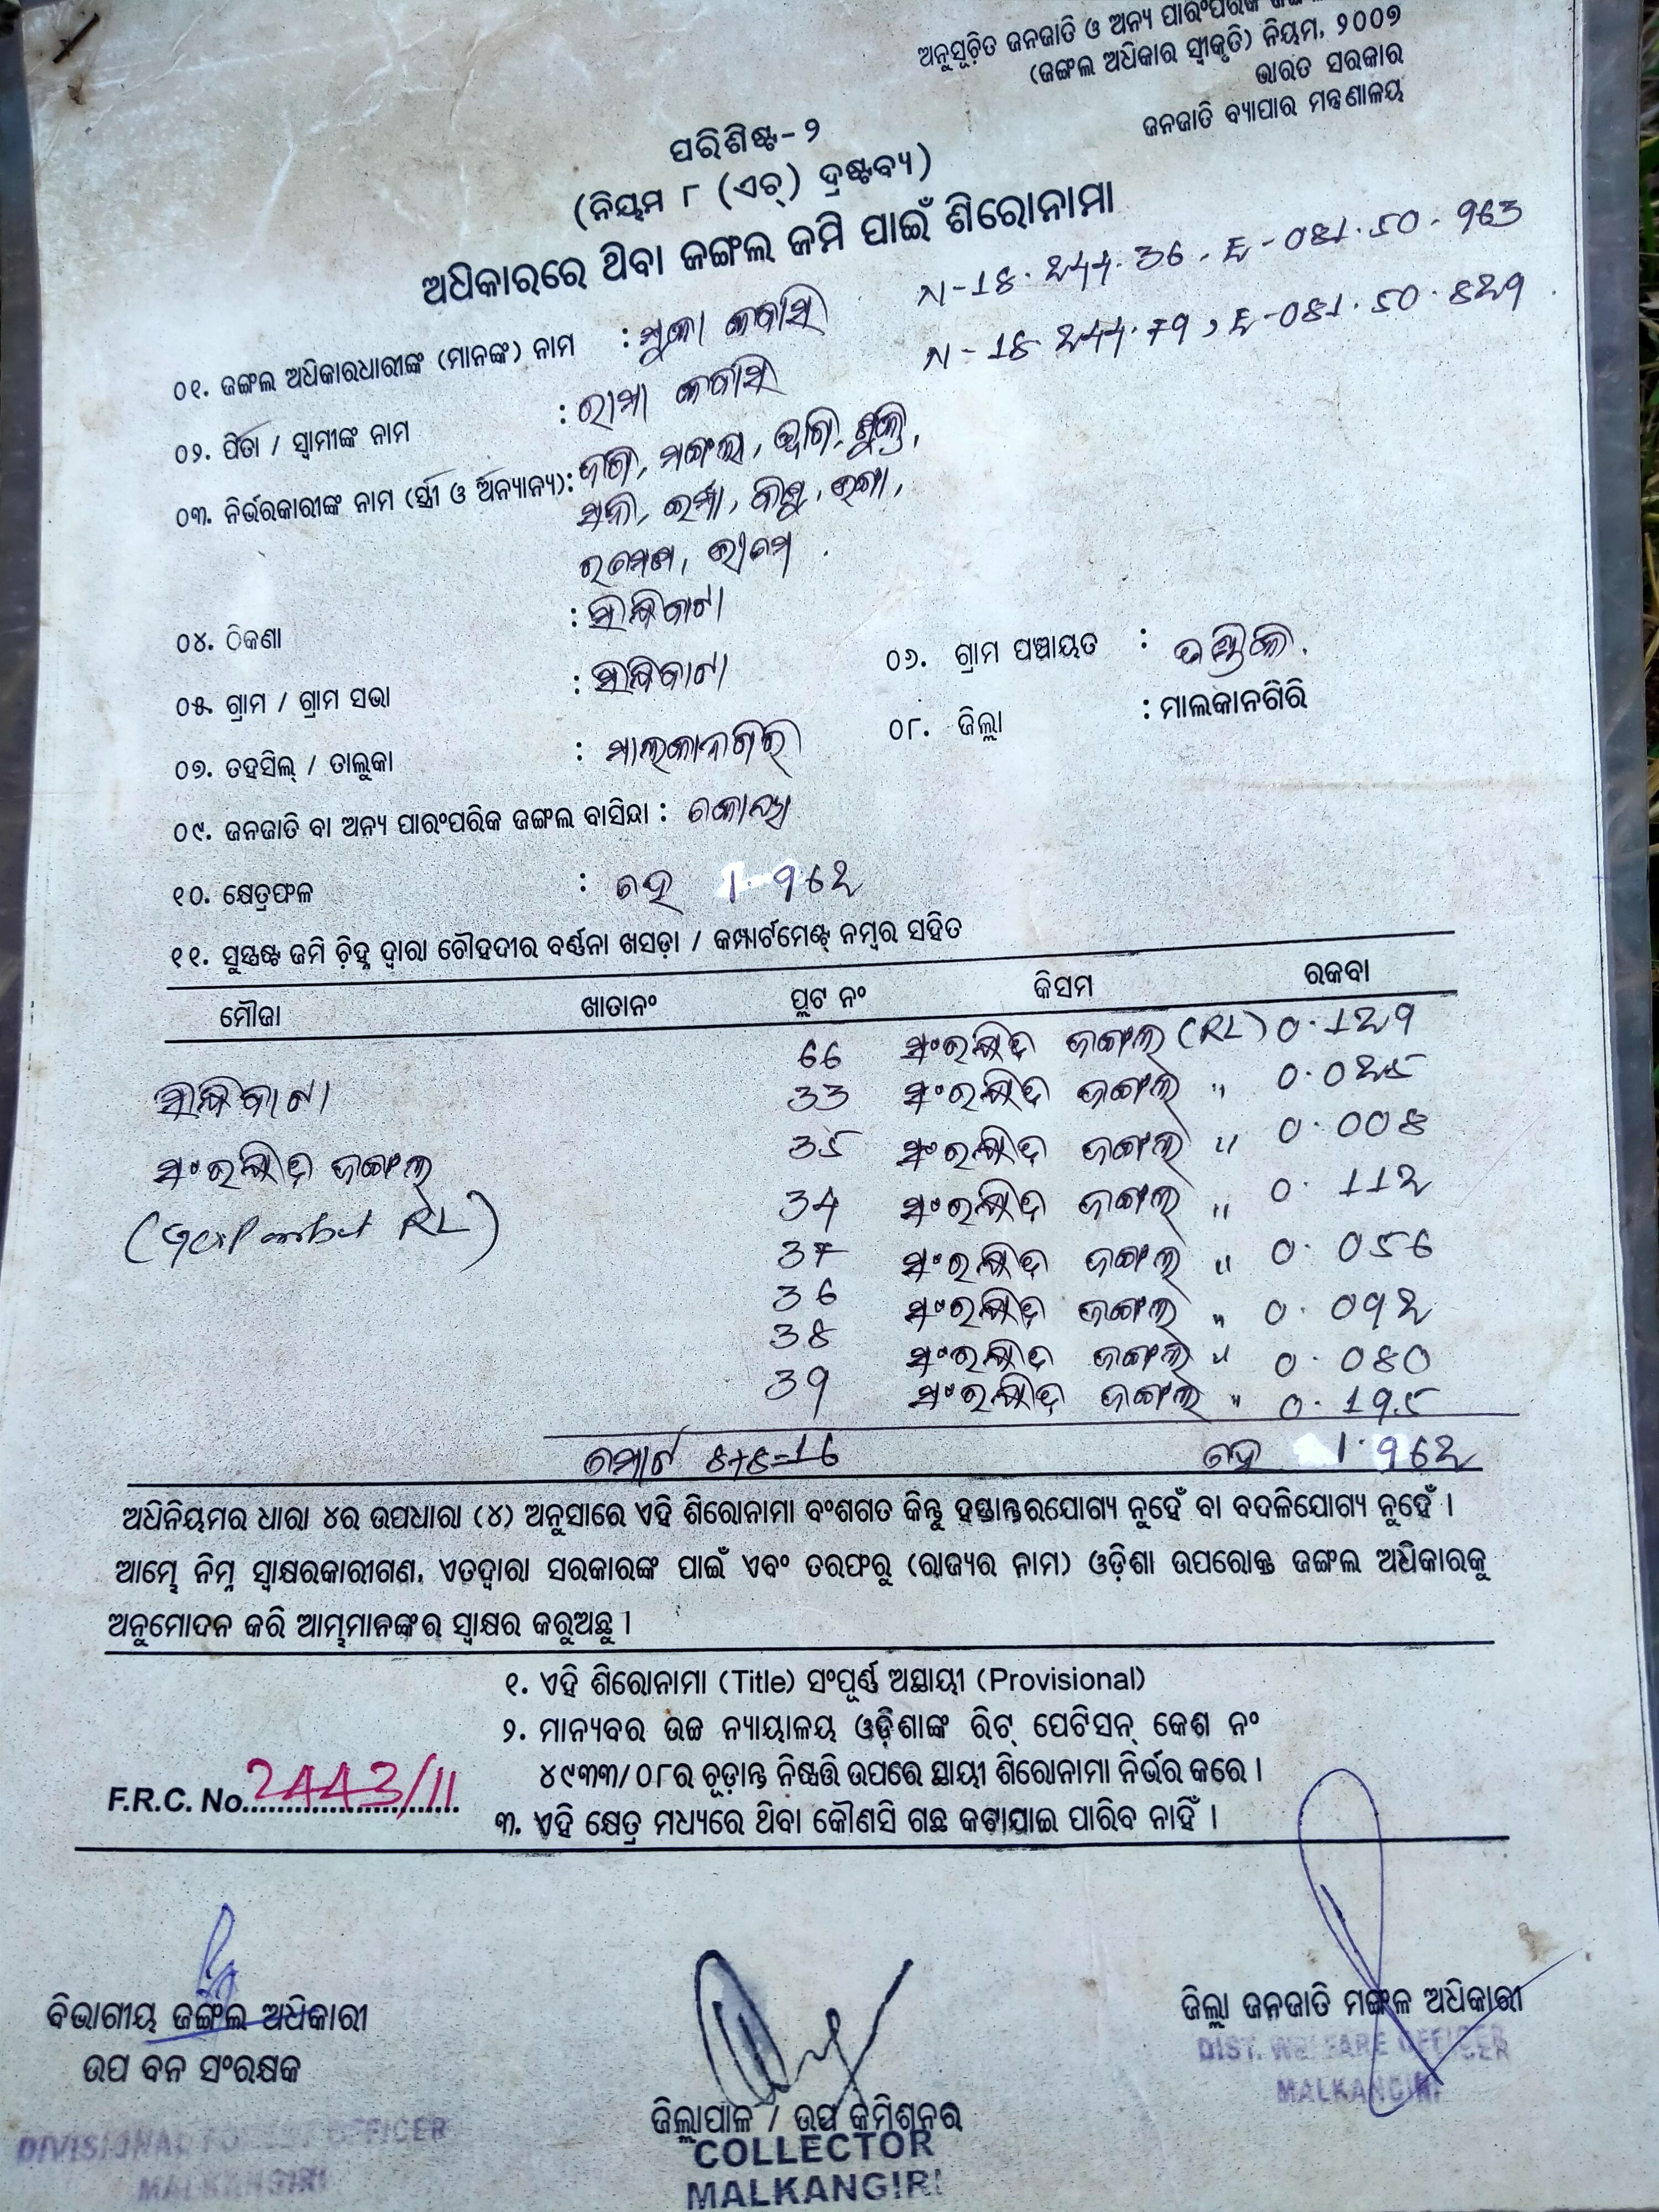 ଅନୁସୂଚିତ ଜନଜାତି ଓ ଅନ୍ୟ ପାରଂପରିକ
(ଜଙ୍ଗଲ ଅଧିକାର ସ୍ୱୀକୃତି) ନିୟମ, ୨୦୦୭
ଭାରତ ସରକାର
ଜନଜାତି ବ୍ୟାପାର ମନ୍ତ୍ରଣାଳୟ
ପରିଶିଷ୍ଟ-୨
(ନିୟମ ୮ (ଏଚ୍) ଦ୍ରଷ୍ଟବ୍ୟ)
ଅଧିକାରରେ ଥିବା ଜଙ୍ଗଲ ଜମି ପାଇଁ ଶିରୋନାମା
N-18.244.36, E-081.50.963
N-18 244.79, E-081.50.829
୦୧. ଜଙ୍ଗଲ ଅଧିକାରଧାରୀଙ୍କ (ମାନଙ୍କ) ନାମ :
୦୨. ପିତା / ସ୍ୱାମୀଙ୍କ ନାମ :
୦୩. ନିର୍ଭରକାରୀଙ୍କ ନାମ (ସ୍ତ୍ରୀ ଓ ଅନ୍ୟାନ୍ୟ):
୦୪. ଠିକଣା :
୦୫. ଗ୍ରାମ / ଗ୍ରାମ ସଭା :
୦୬. ଗ୍ରାମ ପଞ୍ଚାୟତ :
୦୭. ତହସିଲ୍ / ତାଲୁକା : ମାଲକାନଗିରି
୦୮. ଜିଲ୍ଲା : ମାଲକାନଗିରି
୦୯. ଜନଜାତି ବା ଅନ୍ୟ ପାରଂପରିକ ଜଙ୍ଗଲ ବାସିନ୍ଦା : କୋୟା
୧୦. କ୍ଷେତ୍ରଫଳ : ହେ 1.962
୧୧. ସୁସ୍ପଷ୍ଟ ଜମି ଚିହ୍ନ ଦ୍ୱାରା ଚୌହଦୀର ବର୍ଣ୍ଣନା ଖସଡ଼ା / କମ୍ପାର୍ଟମେଣ୍ଟ୍ ନମ୍ବର ସହିତ
ମୌଜା ଖାତାନଂ ପ୍ଲଟ ନଂ କିସମ ରକବା
66 ସଂରକ୍ଷିତ ଜଙ୍ଗଲ (RL) 0.129
33 ସଂରକ୍ଷିତ ଜଙ୍ଗଲ " 0.025
35 ସଂରକ୍ଷିତ ଜଙ୍ଗଲ " 0.008
ସଂରକ୍ଷିତ ଜଙ୍ଗଲ
34 ସଂରକ୍ଷିତ ଜଙ୍ଗଲ " 0.112
37 ସଂରକ୍ଷିତ ଜଙ୍ଗଲ " 0.056
36 ସଂରକ୍ଷିତ ଜଙ୍ଗଲ " 0.092
38 ସଂରକ୍ଷିତ ଜଙ୍ଗଲ " 0.080
39 ସଂରକ୍ଷିତ ଜଙ୍ଗଲ " 0.195
ମୋଟ 8+8=16 ହେ 1.962
ଅଧିନିୟମର ଧାରା ୪ର ଉପଧାରା (୪) ଅନୁସାରେ ଏହି ଶିରୋନାମା ବଂଶଗତ କିନ୍ତୁ ହସ୍ତାନ୍ତରଯୋଗ୍ୟ ନୁହେଁ ବା ବଦଳିଯୋଗ୍ୟ ନୁହେଁ ।
ଆମ୍ଭେ ନିମ୍ନ ସ୍ୱାକ୍ଷରକାରୀଗଣ, ଏତଦ୍ଦ୍ୱାରା ସରକାରଙ୍କ ପାଇଁ ଏବଂ ତରଫରୁ (ରାଜ୍ୟର ନାମ) ଓଡ଼ିଶା ଉପରୋକ୍ତ ଜଙ୍ଗଲ ଅଧିକାରକୁ
ଅନୁମୋଦନ କରି ଆମ୍ଭମାନଙ୍କର ସ୍ୱାକ୍ଷର କରୁଅଛୁ ।
୧. ଏହି ଶିରୋନାମା (Title) ସଂପୂର୍ଣ୍ଣ ଅସ୍ଥାୟୀ (Provisional)
୨. ମାନ୍ୟବର ଉଚ୍ଚ ନ୍ୟାୟାଳୟ ଓଡ଼ିଶାଙ୍କ ରିଟ୍ ପେଟିସନ୍ କେଶ ନଂ
୪୯୩୩/୦୮ର ଚୂଡ଼ାନ୍ତ ନିଷ୍ପତ୍ତି ଉପରେ ସ୍ଥାୟୀ ଶିରୋନାମା ନିର୍ଭର କରେ ।
F.R.C. No. 2443/11
୩. ଏହି କ୍ଷେତ୍ର ମଧ୍ୟରେ ଥିବା କୌଣସି ଗଛ କଟାଯାଇ ପାରିବ ନାହିଁ ।
ବିଭାଗୀୟ ଜଙ୍ଗଲ ଅଧିକାରୀ
ଉପ ବନ ସଂରକ୍ଷକ
DIVISIONAL FOREST OFFICER
MALKANGIRI
ଜିଲ୍ଲାପାଳ / ଉପ କମିଶନର
COLLECTOR
MALKANGIRI
ଜିଲ୍ଲା ଜନଜାତି ମଙ୍ଗଳ ଅଧିକାରୀ
DIST. WELFARE OFFICER
MALKANGIRI